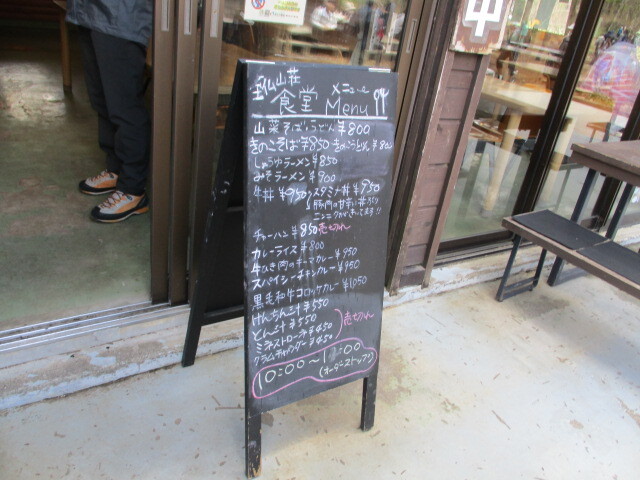 山荘
食堂 メニュー
Menu
山菜そば・うどん ¥800
きのこそば ¥850 きのこうどん ¥800
しょうゆラーメン ¥850
みそラーメン ¥900
牛丼 ¥950 スタミナ丼 ¥950
豚肉の甘辛い丼
ニンニクがきいてます!!
チャーハン ¥850 売り切れ
カレーライス ¥800
牛ひき肉のキーマカレー ¥950
スパイシーチキンカレー ¥950
黒毛和牛コロッケカレー ¥1050
けんちん汁 ¥550
とん汁 ¥550
売り切れ
ミネストローネ ¥450
クラムチャウダー ¥450
10:00〜
(オーダーストップ)